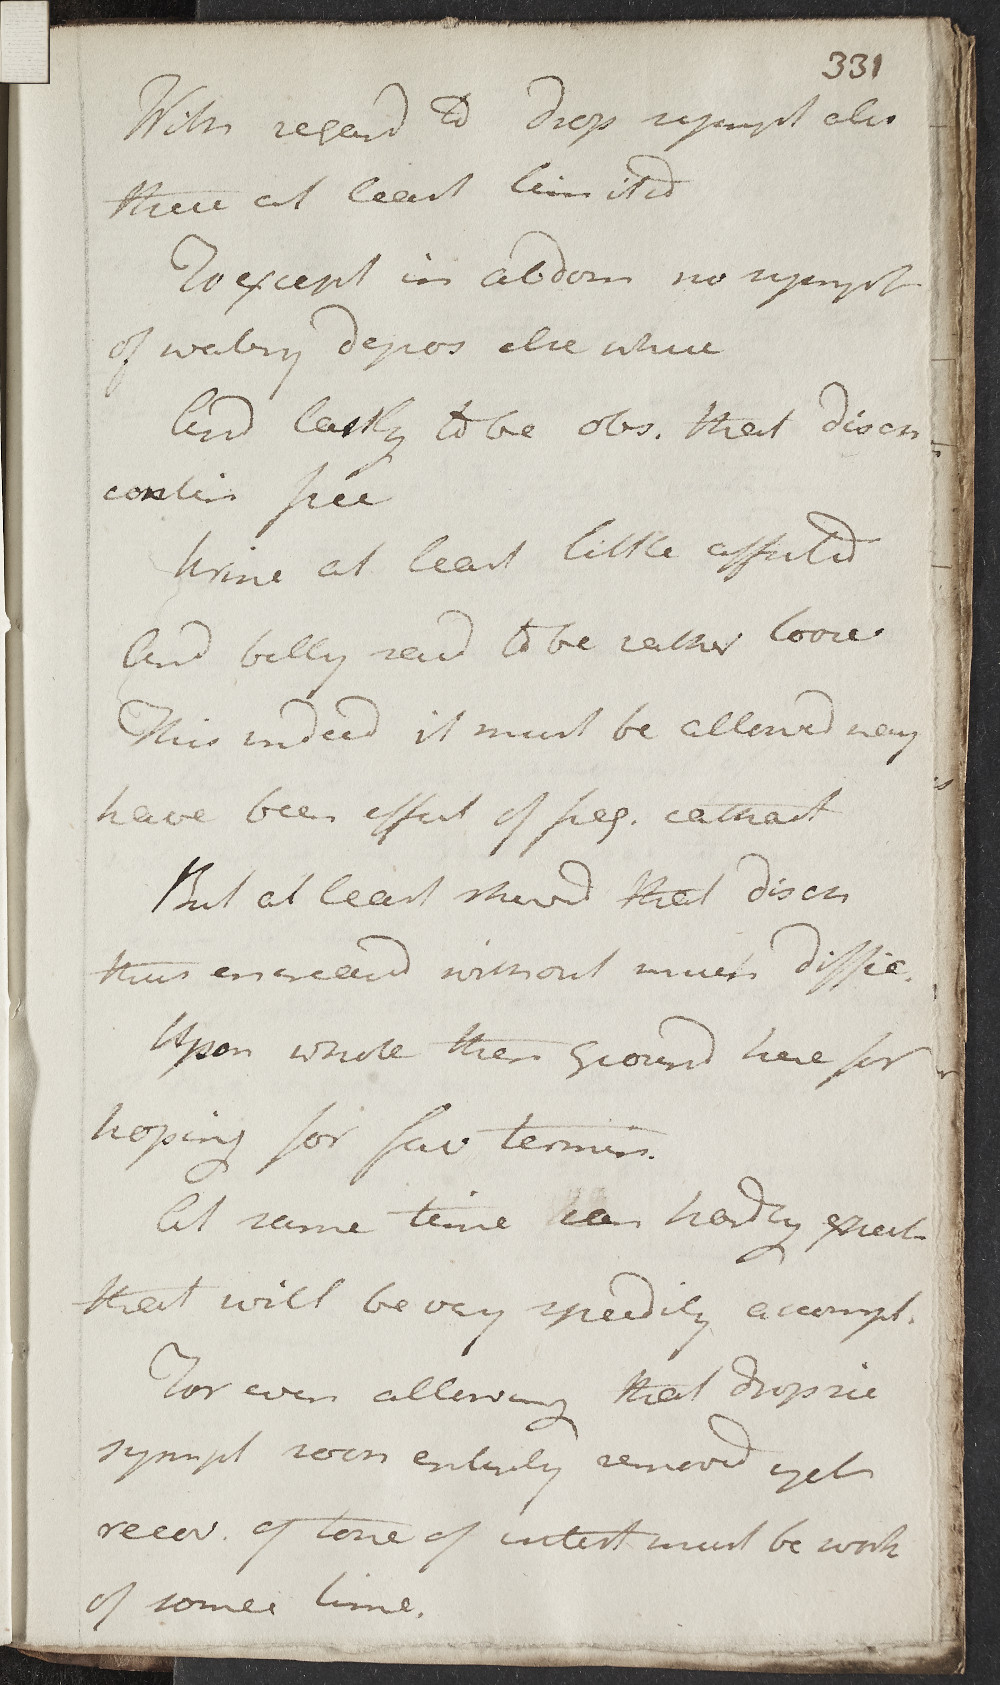 331
With regard to drop sympt also
these at least limited
To except in abdom no sympt
of watery depos else where
And lastly to be obs. that disch
contin free
Urine at least little affected
And belly said to be rather loose
This indeed it must be allowed may
have been effect of freq. cathart
But at least showed that disch
thus encreased without much diffic.
Upon whole then ground here for
hoping for fav termin.
At same time can hardly expect
that will be very speedily accompl.
For even allowing that dropsic
sympt soon entirely removed yet
recov. of tone of intest must be work
of some time.